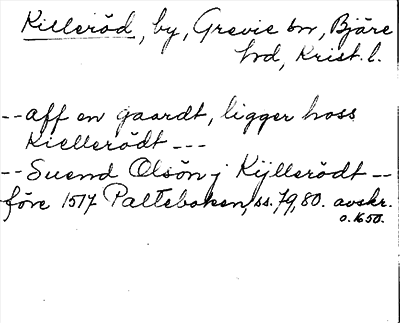 Killeröd, by, Grevie sn, Bjäre
hd, Krist. l.
-- aff en gaardt, ligger hoss
Kiellerödt ---
-- Suend Olsön j Kÿllerödt --
före 1517 Palteboken, ss. 79, 80. avskr.
o. 1650.